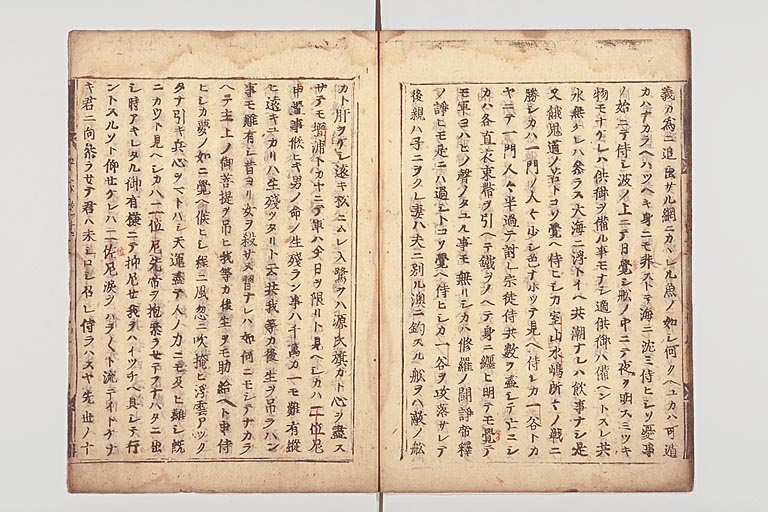 義カ為ニ追落サル網ニカヽレル魚ノ如シ何クヘユカハ可遁
カハナカラヘハツヘキ身ニモ非ストテ海ニ沈ミ侍ヒシソ憂事
ノ始ニテ侍シ波ノ上ニテ日暮シ舩ノ中ニテ夜ヲ明スミツキ
物モナケレハ供御ヲ備ル事モナシ適供御ハ備ヘントスレ共
水無ケレハ参ラス大海ニ浮トイヘ共潮ナレハ飲事ナシ是
又餓鬼道ノ苦トコソ覺ヘ侍ヒシカ室山水嶋所々ノ戰ニ
勝シカハ一門ノ人々少シ色ナホツテ見ヘ侍シカ一谷トカ
ヤニテ一門人々半過テ討レ宗徒侍共數ヲ盡シテ亡ニシ
カハ各直衣束帶ヲ引ヘテ鐵ヲノヘテ身ニ纏ヒ明テモ暮テ
モ軍ヨハヒノ聲ノタユル事モ無リシカハ修羅ノ闘諍帝釋
ノ諍モ是ニハ過シトコソ覺ヘ侍ヒシカ一谷ヲ攻落サレテ
後親ハ子ニヲクレ妻ハ夫ニ別ル澳ニ釣スル舩ヲハ敵ノ舩
カト肝ヲケシ遠キ松ニムレ入鷺ヲハ源氏旗カト心ヲ盡ス
サテモ壇浦トカヤニテ軍ハ今日ヲ限リト見ヘシカハ二位尼
申置事候ヒキ男ノ命ノ生殘ラン事ハ千萬カ一モ難有縱
ヒ遠キユカリハ生殘ツタリト云共我等カ後生ヲ吊ラハン
事モ難有シ昔ヨリ女ヲ殺サヌ習ナレハ如何ニモシテナカラ
ヘテ主上ノ御菩提ヲ吊ヒ我等カ後生ヲモ助給ヘト申侍
ヒシカ夢ノ如ニ覺ヘ候ヒシ程ニ風忽ニ吹掩ヒ浮雲アツク
タナ引キ兵心ヲマトハシ天運盡テ人ノ力ニモ及ヒ難シ既
ニカウト見ヘシカハ二位尼先帝ヲ抱奉ラセテフナハタニ出
シ時アキレタル御有樣ニテ抑尼セ我ヲハイツチヘ具シテ行
ントスルソト仰セケレハ二位尼淚ヲハラ〱ト流テイトケナ
キ君ニ向奉ラセテ君ハ未シロシ侍ラハスヤ先世ノ十